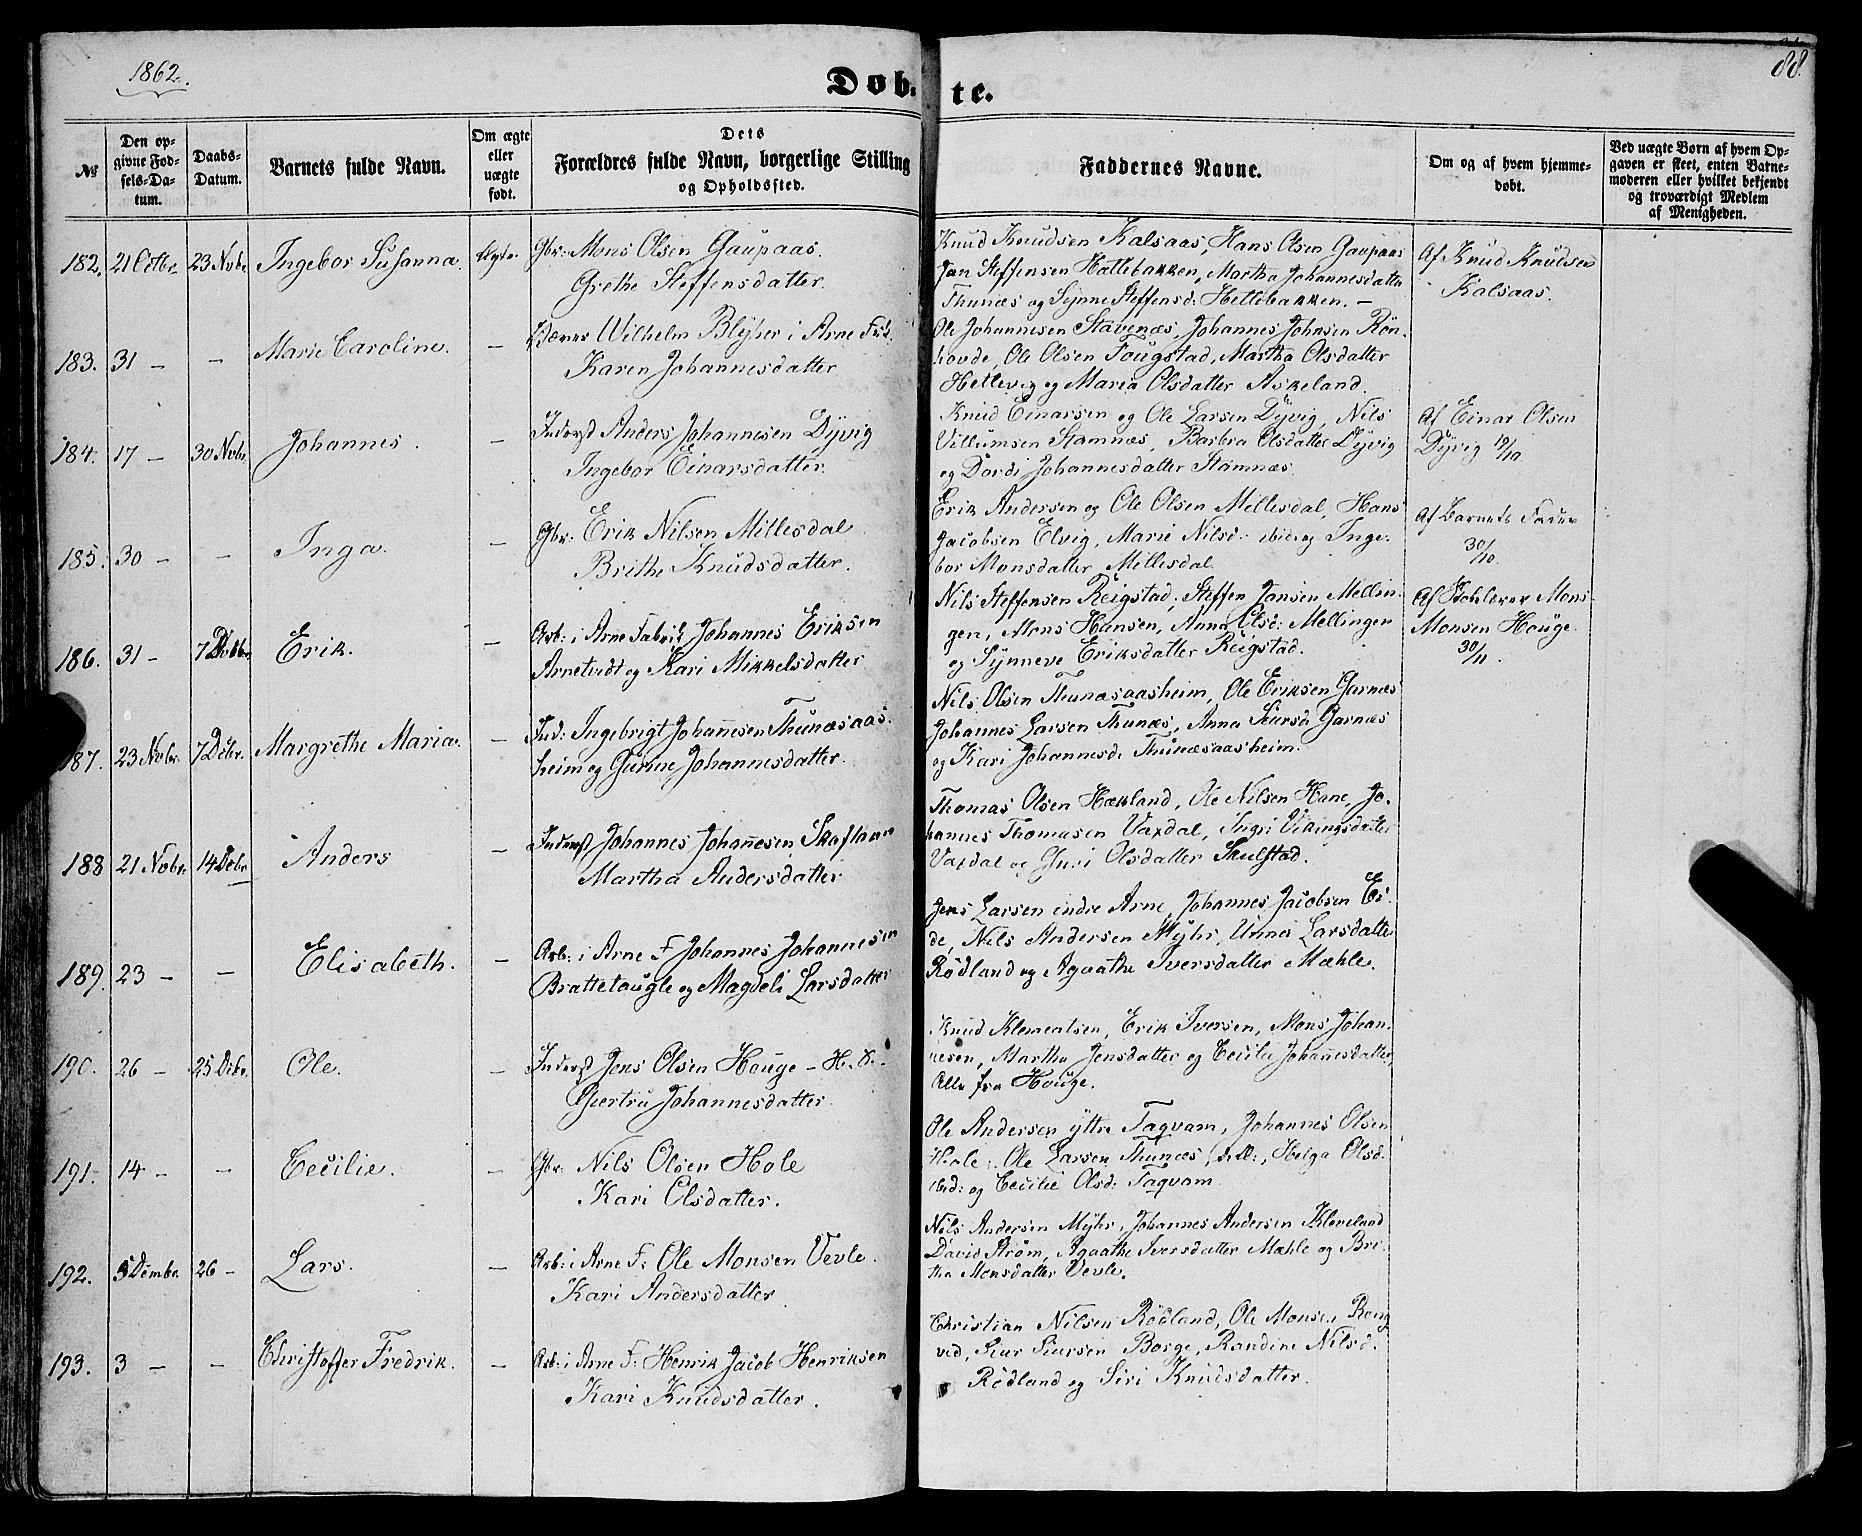 1862.
88.
Døb- te.
No
Den op-
givne Fød-
sels-Da-
tum.
Daabs-
Datum.
Barnets fulde Navn.
Om ægte
eller
uægte
født.
Dets
Forældres fulde Navn, borgerlige Stilling
og Opholdssted.
Faddernes Navne.
Om og af hvem hjemme-
døbt.
Ved uægte Børn af hvem Op-
gaven er skeet, enten Barne-
moderen eller hvilket bekjendt
og troværdigt Medlem
af Menigheden.
182. 21 Octbr. 23 Nvbr. Ingebor Susanna. Ægte.
Gbr: Mons Olsen Gaupaas.
Grethe Steffensdatter.
Knud Knudsen Kalsaas, Hans Olsen Gaupaas
Jan Steffensen Hattebakken, Martha Johannesdatter
Thunæs og Synne Steffensd: Hettebakken. –
Af Knud Knudsen
Kalsaas.
183. 31 – – Marie Caroline. –
Wilhelm Blyher i Arne Fbk.
Karen Johannesdatter
Ole Johannesen Stavenæs, Johannes Johnsen Røn-
hovde, Ole Olsen Fougstad, Martha Olsdatter
Hellevig og Maria Olsdatter Askeland.
184. 17 – 30 Nvbr. Johannes. –
Inderst Anders Johannesen Dyvig
Ingebor Einarsdatter.
Knud Einarsen og Ole Larsen Dyvig, Nils
Villumsen Stamnæs, Barbra Olsdatter Dyvig
og Dordi Johannesdatter Stamnæs.
Af Einar Olsen
Dyvig 19/10.
185. 30 – – Inga. –
Gbr: Erik Nilsen Millesdal
Brithe Knudsdatter.
Erik Andersen og Ole Olsen Millesdal, Hans
Jacobsen Elvig, Marie Nilsd: ibid: og Inge-
bor Monsdatter Millesdal.
Af Barnets Fader
30/10.
186. 31 – 7 Dcbr. Erik. –
Arb: i Arne Fabrik Johannes Eriksen
Arnetvedt og Kari Mikkelsdatter
Nils Steffensen Reigstad, Steffen Jansen Mellin-
gen, Mons Hansen, Anna Olsd: Mellingen
og Synneve Eriksdatter Reigstad.
Af Skolelærer Mons
Monsen Houge.
30/11.
187. 23 Nobr. 7 Dcbr. Margrethe Maria. –
Ind: Ingebrigt Johannesen Thunæsaas-
heim og Gurine Johannesdatter.
Nils Olsen Thunæsaasheim, Ole Eriksen Garnæs
Johannes Larsen Thunæs, Anna Siursd Garnæs
og Kari Johannesd: Thunæsaasheim.
188 21 Nobr. 14 Dcbr Anders –
Inderst Johannes Johannesen Skaftaae
Martha Andersdatter
Thomas Olsen Hækland, Ole Nilsen Hane, Jo-
hannes Thomasen Vaxdal, Ingri Vikingsdatter
Vaxdal og Guri Olsdatter Skulstad.
189. 23 – – Elisabeth. –
Arb: i Arne F Johannes Johannesen
Brattetougle og Magdeli Larsdatter
Jens Larsen indre Arne, Johannes Jacobsen Ei-
de, Nils Andersen Myhr, Larsdatter
Rødland og Agaathe Iversdatter Mæhle.
190. 26 – 25 Dcbr. Ole. –
Inderst Jens Olsen Houge – H. S. –
Gjertru Johannesdatter.
Knud Klementsen, Erik Iversen, Mons Johan-
nesen, Martha Jensdatter og Cecilie Johannesdatter,
Alle fra Houge.
191. 14 – – Cecilie. –
Gbr: Nils Olsen Hole
Kari Olsdatter.
Ole Andersen yttre Taqvam, Johannes Olsen
Hole, Ole Larsen Thunæs, Helga Olsd:
ibid: og Cecilie Olsd: Taqvam.
192. 5 Dcmbr. 26 – Lars. –
Arb: i Arne F: Ole Monsen Vevle.
Kari Andersdatter.
Nils Andersen Myhr, Johannes Andersen Kleveland
David Strøm, Agaathe Iversdatter Mæhle og Bri-
the Monsdatter Vevle.
193. 3 – – Christoffer Fredrik. –
Arb: i Arne F: Henrik Jacob Henriksen
Kari Knudsdatter.
Christian Nilsen Rødland, Ole Monsen Rong-
ved, Siur Siursen Borge, Randine Nilsd.
Rødland og Siri Knudsdatter.